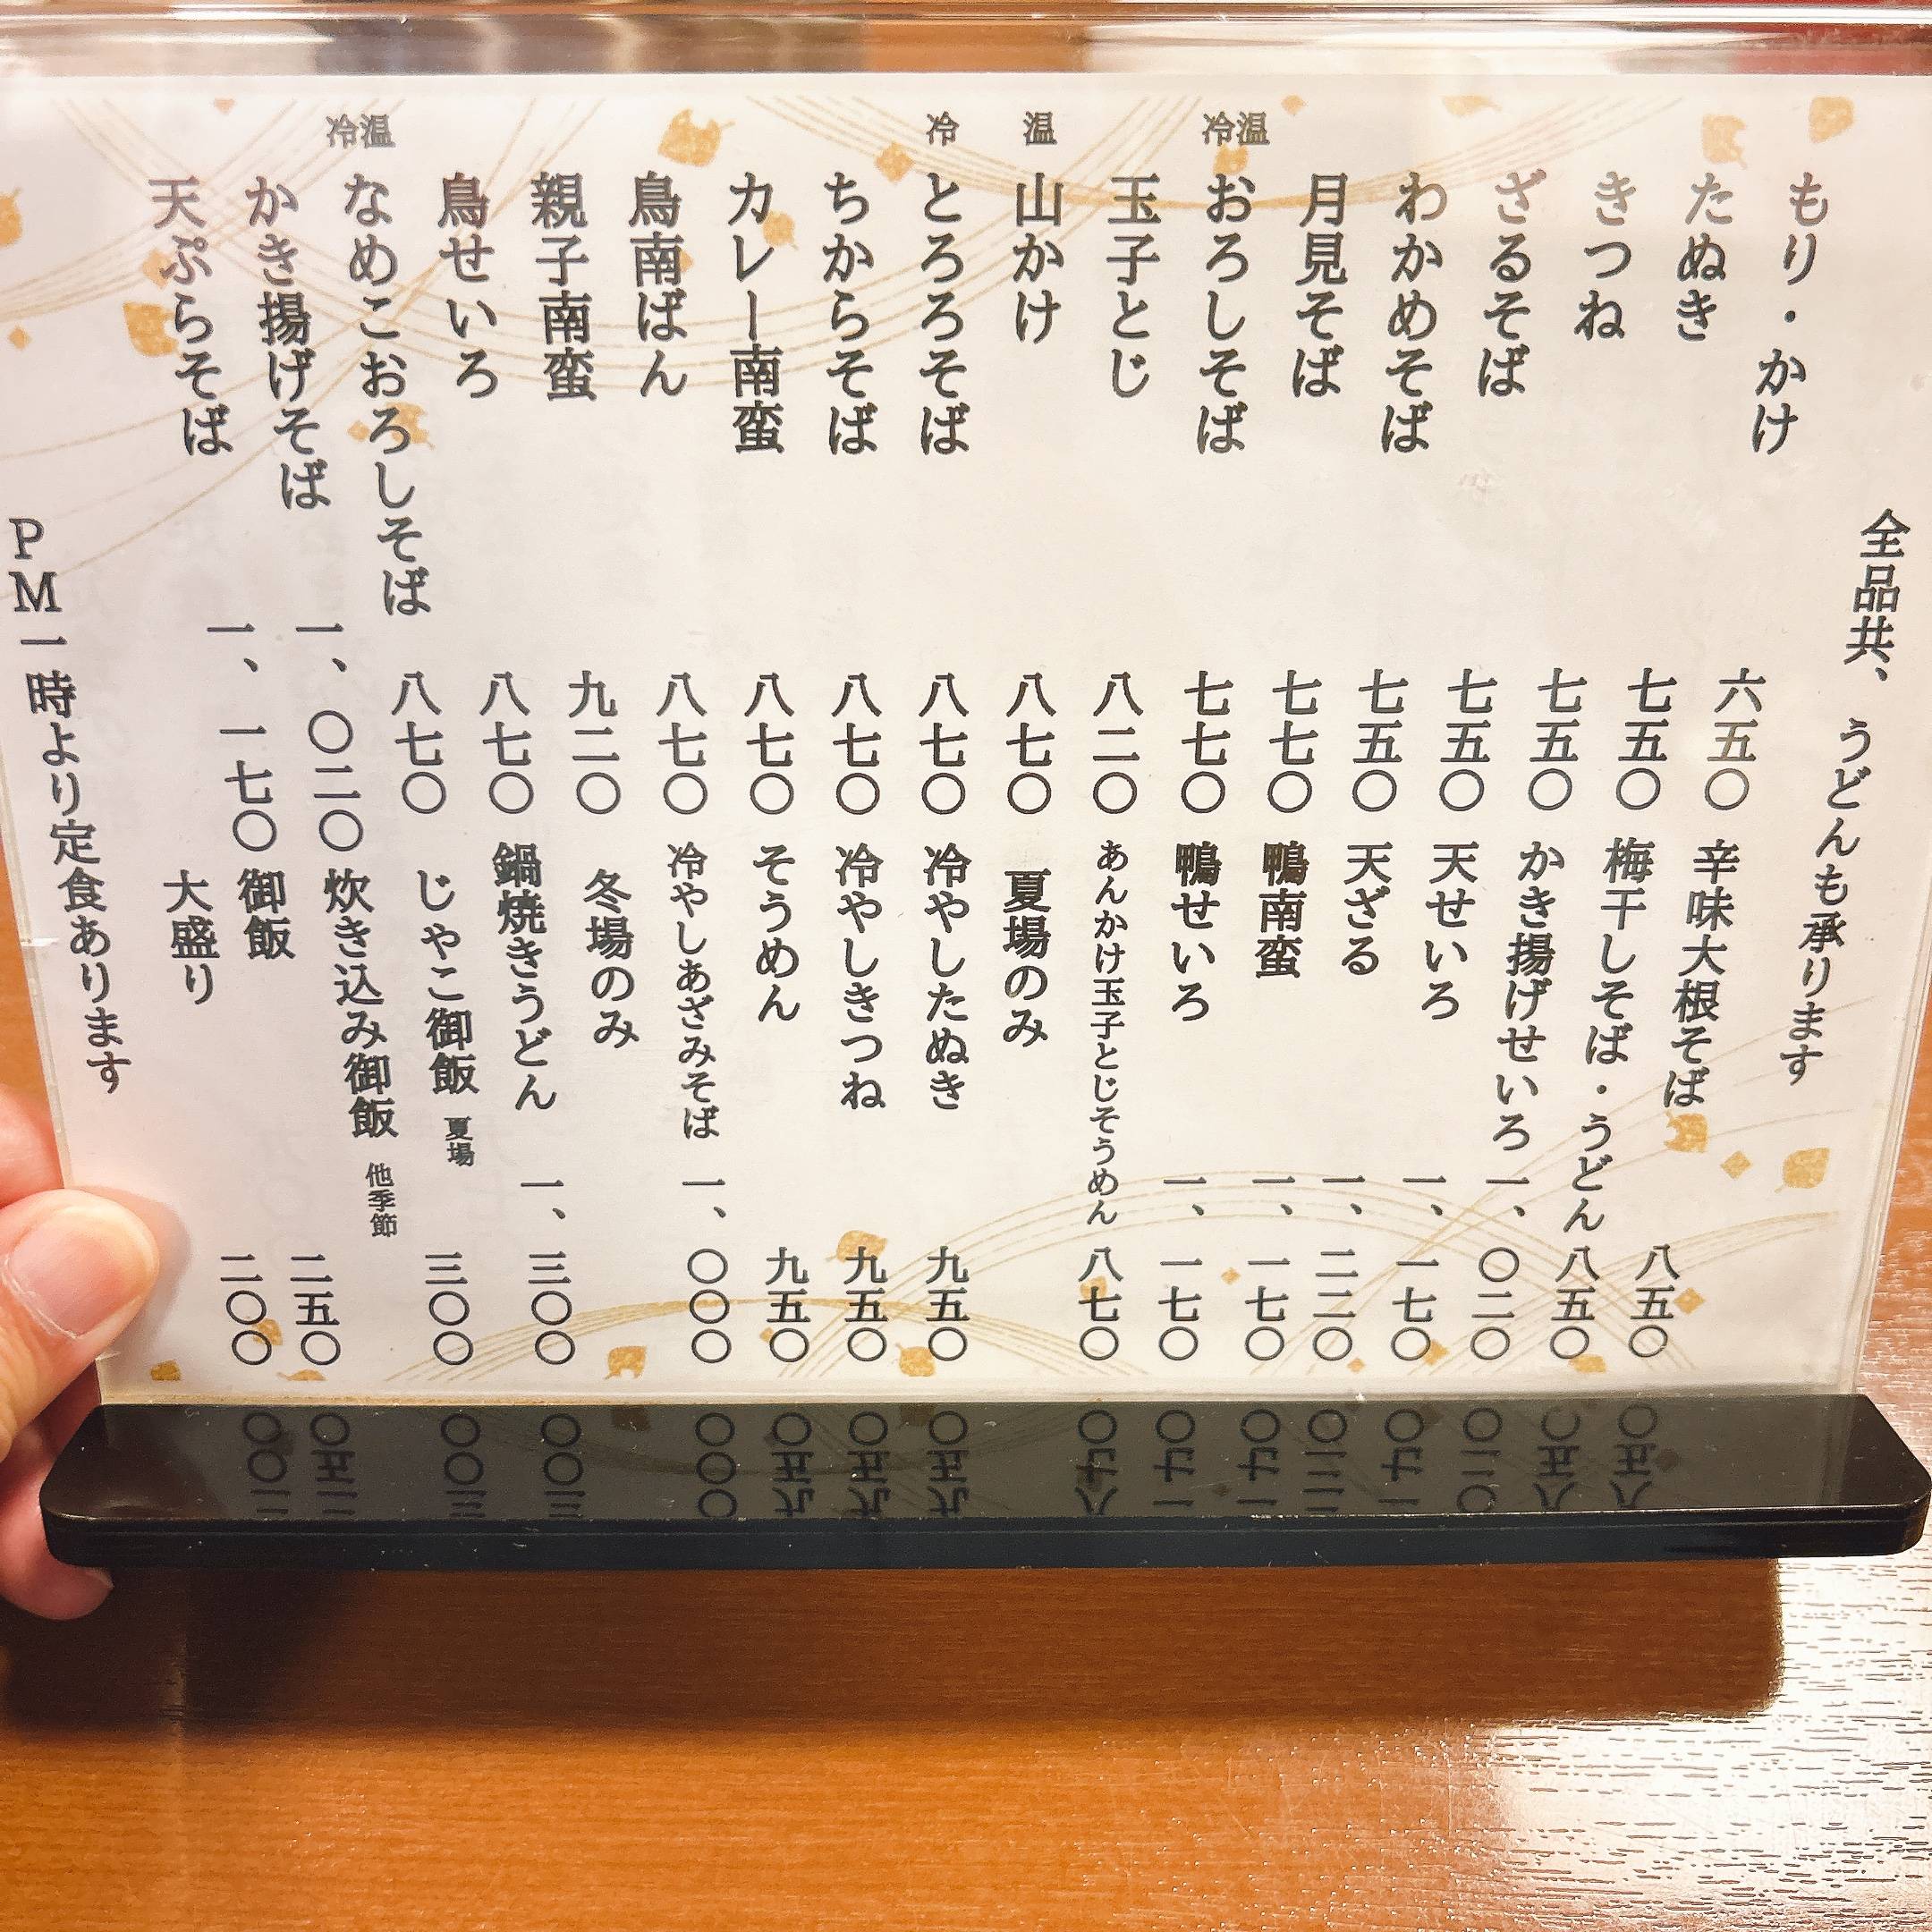 全品共、うどんも承ります
もり・かけ 六五〇
たぬき 七五〇
きつね 七五〇
ざるそば 七五〇
わかめそば 七五〇
月見そば 七七〇
冷温 おろしそば 七七〇
玉子とじ 八二〇
温 山かけ 八七〇
冷 とろろそば 八七〇
ちからそば 八七〇
カレー南蛮 八七〇
鳥南ばん 八七〇
親子南蛮 九二〇
鳥せいろ 八七〇
冷温 なめこおろしそば 八七〇
かき揚げそば 一、〇二〇
天ぷらそば 一、一七〇
辛味大根そば 八五〇
梅干しそば・うどん 八五〇
かき揚げせいろ 一、〇二〇
天せいろ 一、一七〇
天ざる 一、二二〇
鴨南蛮 一、一七〇
鴨せいろ 一、一七〇
あんかけ玉子とじそうめん 八七〇
夏場のみ
冷やしたぬき 九五〇
冷やしきつね 九五〇
そうめん 九五〇
冷やしあざみそば 一、〇〇〇
冬場のみ
鍋焼きうどん 一、三〇〇
じゃこ御飯 夏場 三〇〇
炊き込み御飯 他季節
御飯 二五〇
大盛り 二〇〇
PM一時より定食あります